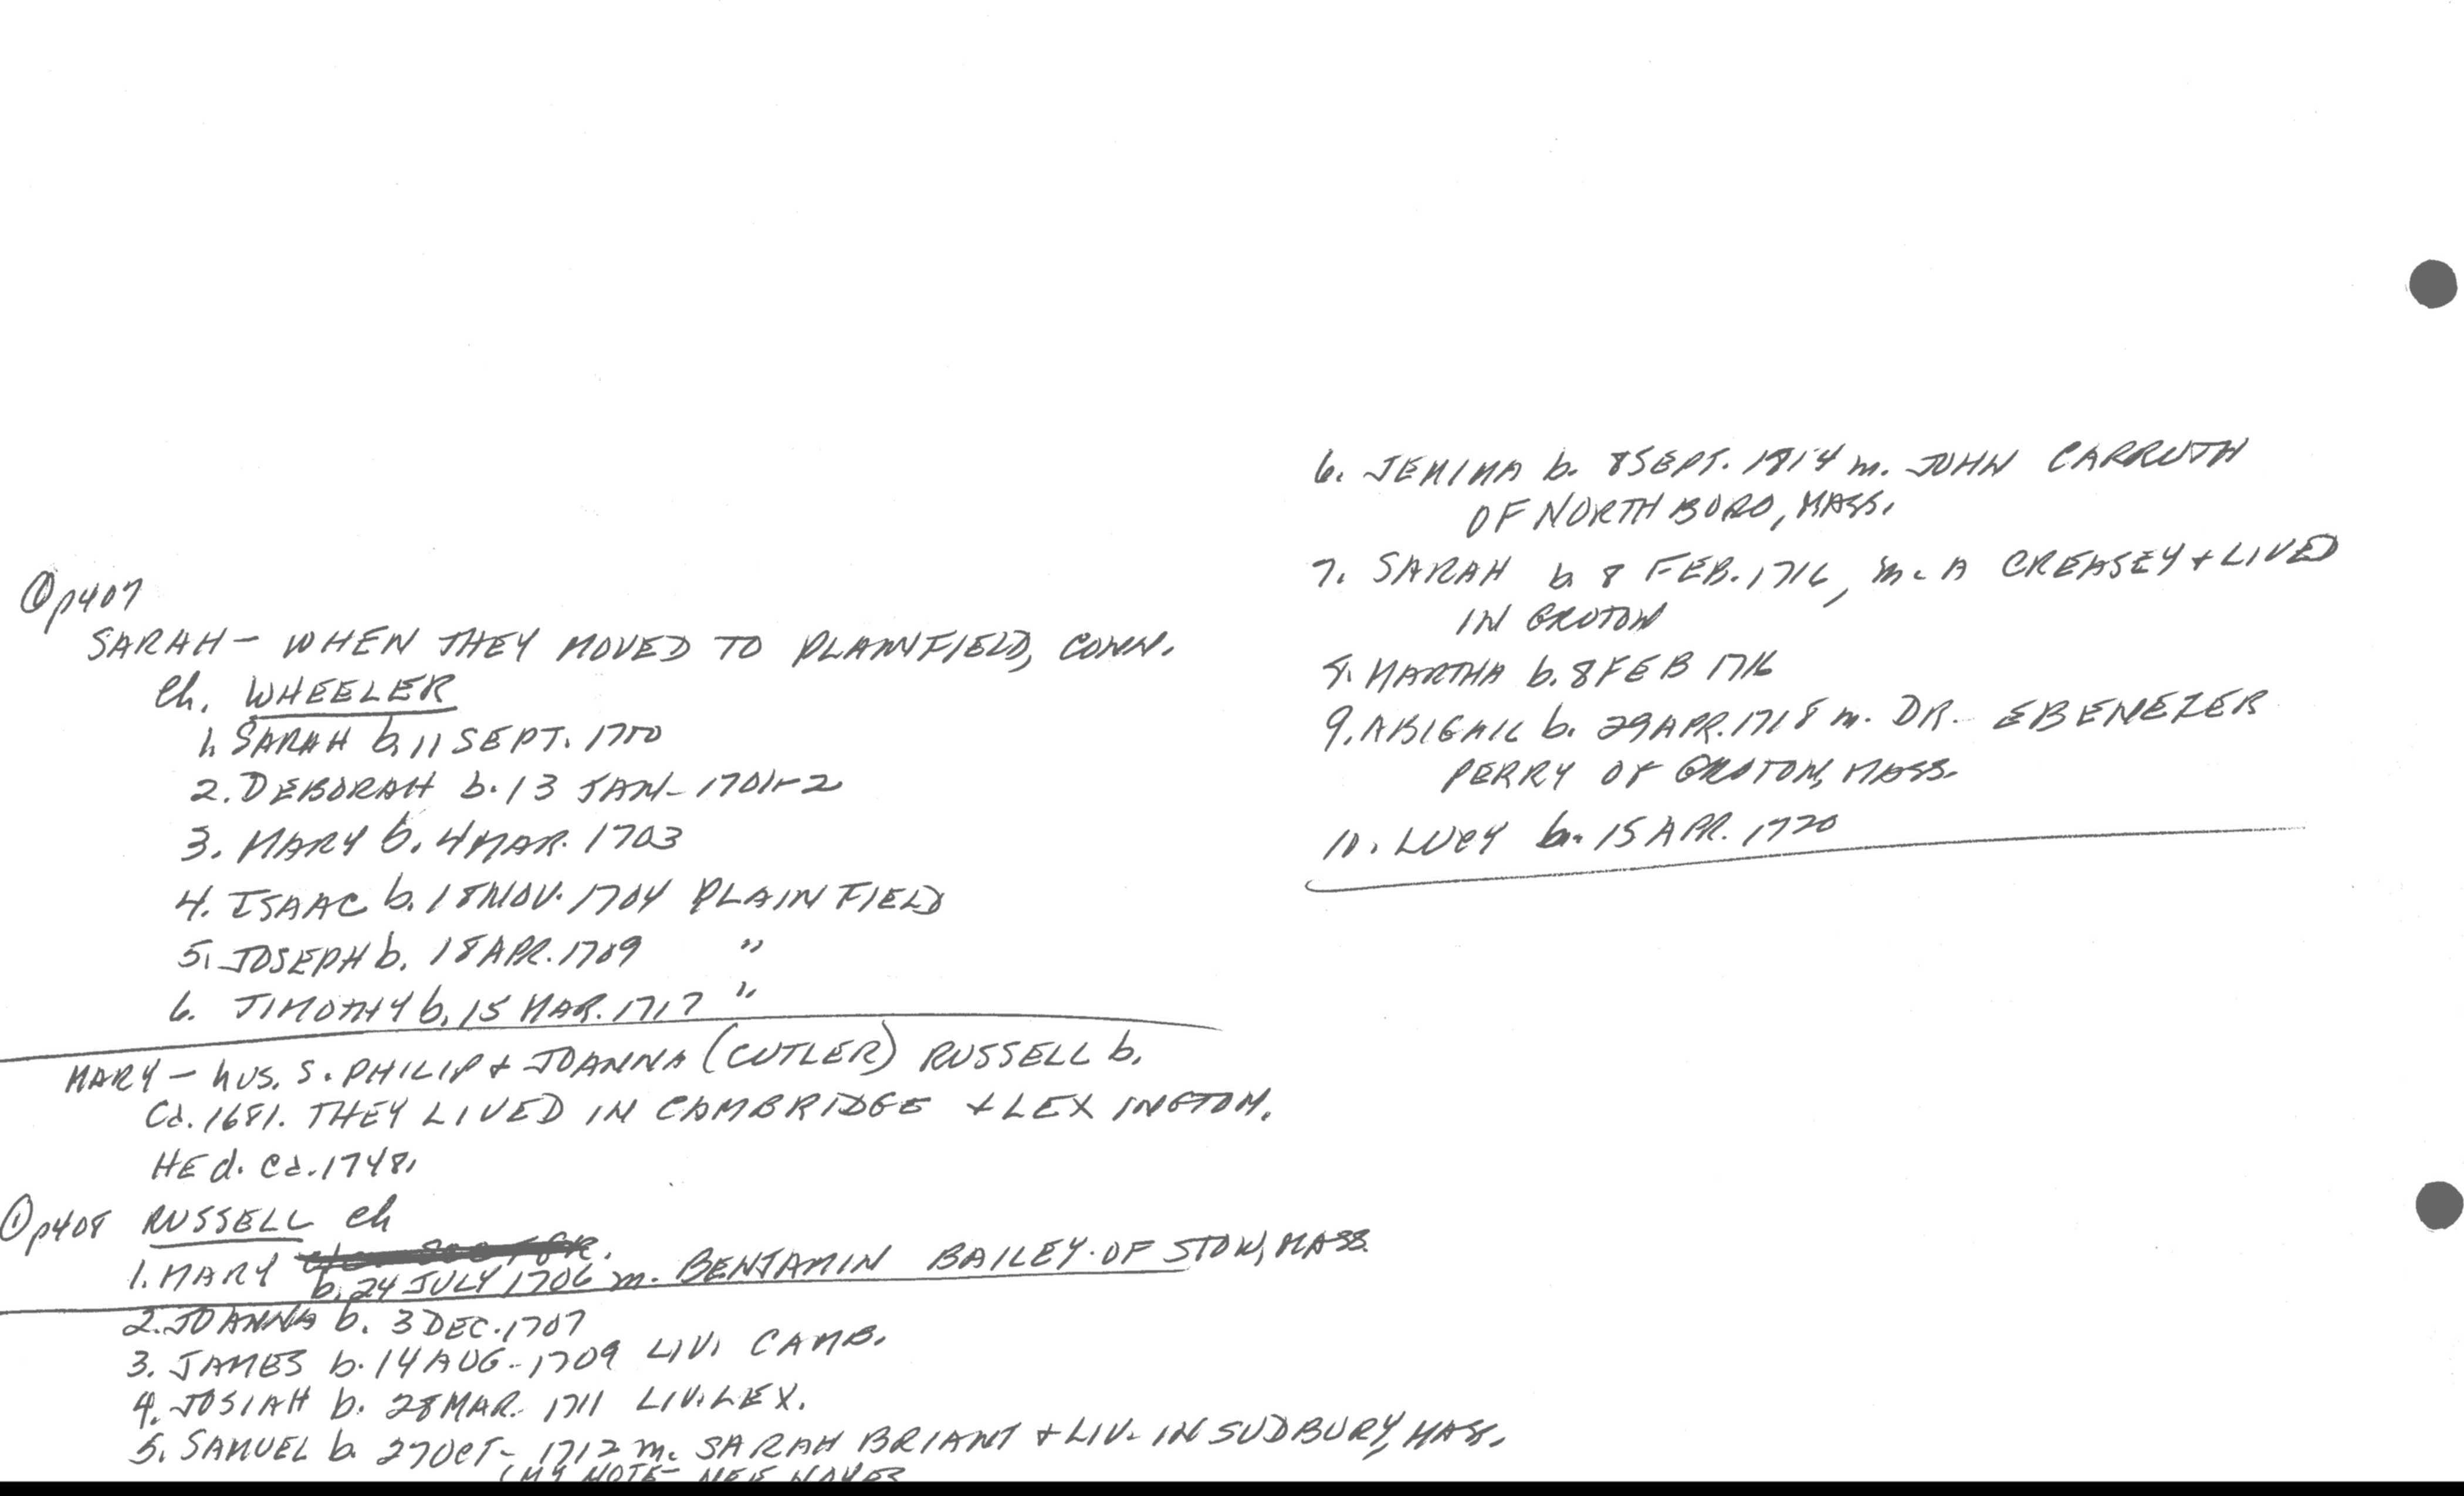 ① p407
SARAH - WHEN THEY MOVED TO PLAINFIELD, CONN.
Ch. WHEELER
1. SARAH b. 11 SEPT. 1700
2. DEBORAH b. 13 JAN- 1701-2
3. MARY b. 4 MAR. 1703
4. ISAAC b. 18 NOV. 1704 PLAINFIELD
5. JOSEPH b. 18 APR. 1709 "
6. TIMOTHY b. 15 MAR. 1717 "
MARY - hus. S. PHILIP + JOANNA (CUTLER) RUSSELL b.
Ca. 1681. THEY LIVED IN CAMBRIDGE + LEXINGTON.
HE d. Ca. 1748.
① p408 RUSSELL Ch
1. MARY
b. 24 JULY 1706 m. BENJAMIN BAILEY OF STOW, MASS.
2. JOANNA b. 3 DEC. 1707
3. JAMES b. 14 AUG- 1709 LIV. CAMB.
4. JOSIAH b. 28 MAR. 1711 LIV. LEX.
5. SAMUEL b. 27 OCT- 1712 m. SARAH BRIANT + LIV. IN SUDBURY, MASS.
(MY NOTE-
6. JEMIMA b. 8 SEPT. 1814 m. JOHN CARRUTH
OF NORTHBORO, MASS.
7. SARAH b. 8 FEB. 1716, m. A CREASEY + LIVED
IN GROTON
8. MARTHA b. 8 FEB 1716
9. ABIGAIL b. 29 APR. 1718 m. DR. EBENEZER
PERRY OF GROTON, MASS.
10. LUCY b. 15 APR. 1720